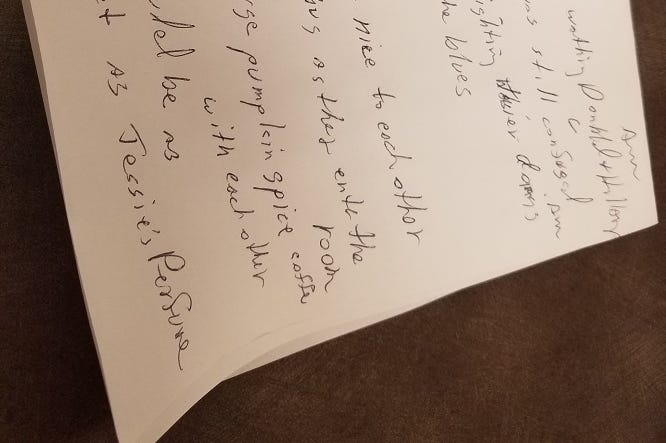 Am
wathing Donhld & Hillory
c
us still confused Am
ighting thier dams
he blues
nice to each other
us as they ente the
room
ge pumpkin spice coffee
with each other
ld be as
et as Jessie's Perfume